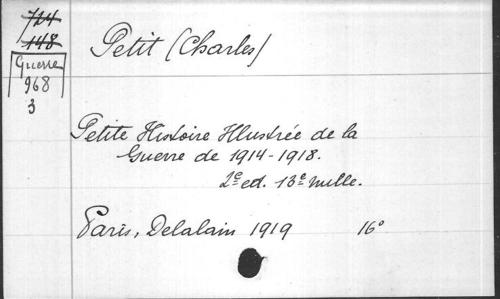 724
148
Guerre
968
3
Petit (Charles)
Petite Histoire Illustrée de la
Guerre de 1914-1918.
2e ed. 13e mille.
Paris, Delalain 1919 16°